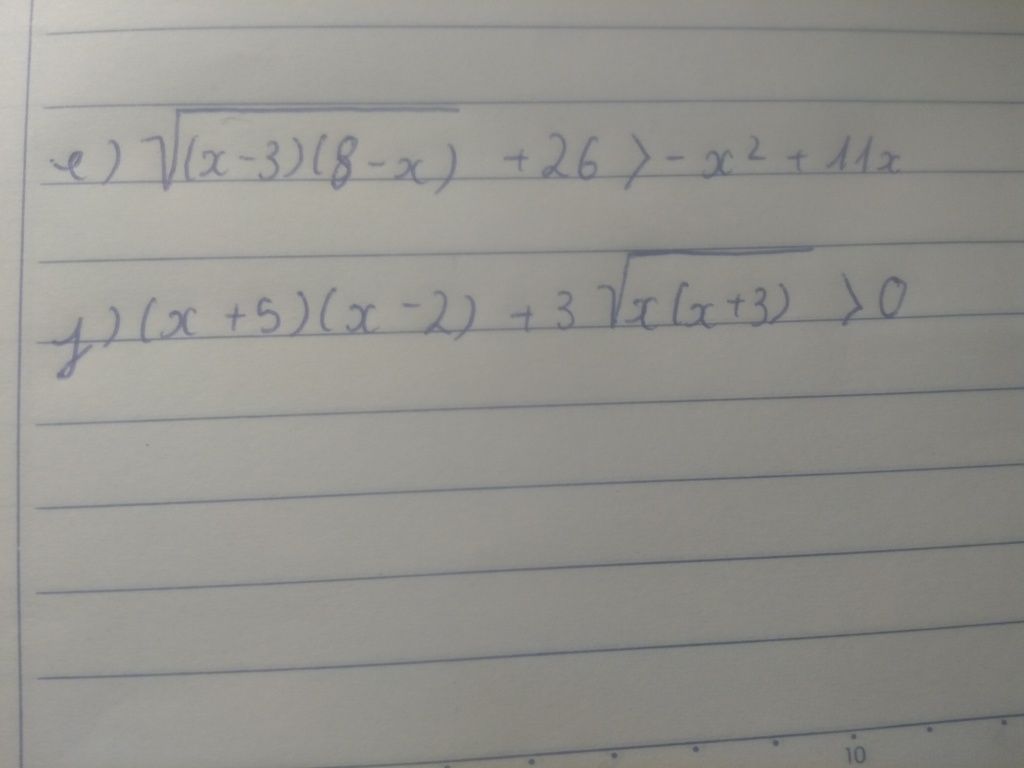 e) √(x-3)(8-x) + 26 > -x² + 11x
f) (x+5)(x-2) + 3√x(x+3) > 0
10